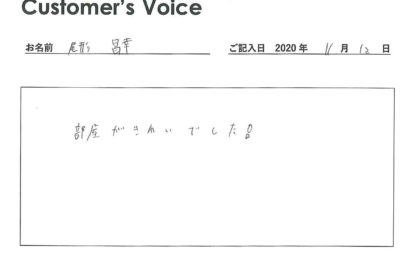 Customer's Voice
お名前 尾形 昌幸 ご記入日 2020 年 11 月 12 日
部屋がきれいでした!!